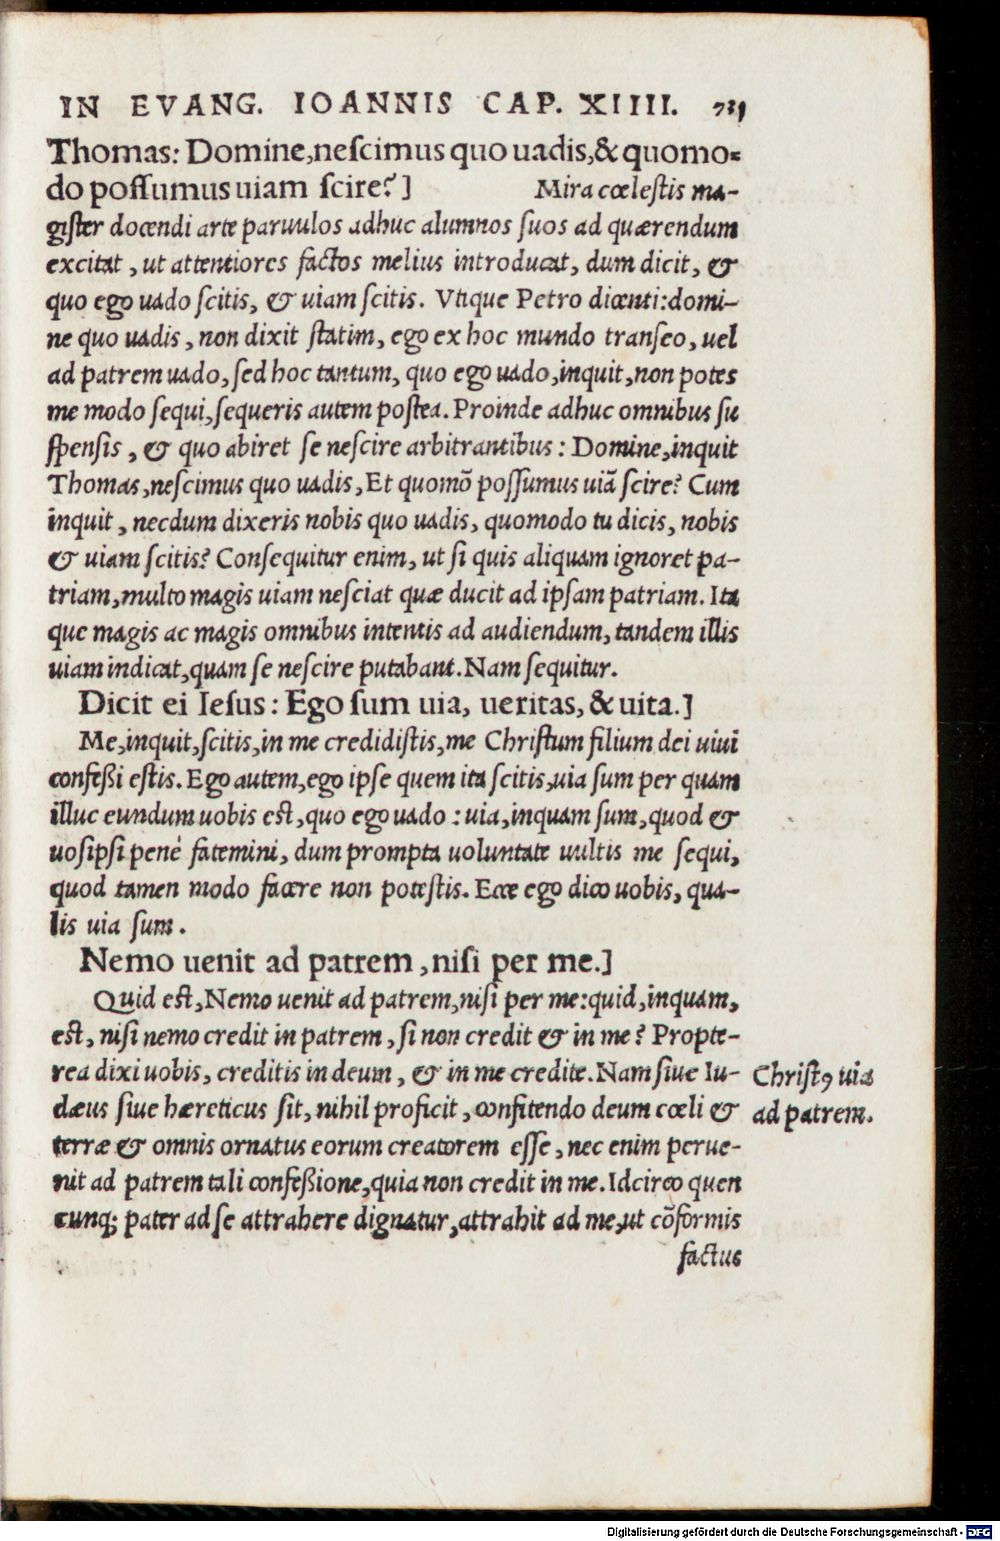 IN EVANG. IOANNIS CAP. XIIII. 731
Thomas: Domine, nescimus quo uadis, & quomo-
do possumus uiam scire?] Mira cœlestis ma-
gister docendi arte paruulos adhuc alumnos suos ad quærendum
excitat, ut attentiores factos melius introducat, dum dicit, &
quo ego uado scitis, & uiam scitis. Vtique Petro dicenti: domi-
ne quo uadis, non dixit statim, ego ex hoc mundo transeo, uel
ad patrem uado, sed hoc tantum, quo ego uado, inquit, non potes
me modo sequi, sequeris autem postea. Proinde adhuc omnibus su
spensis, & quo abiret se nescire arbitrantibus: Domine, inquit
Thomas, nescimus quo uadis, Et quomõ possumus uiã scire? Cum
inquit, necdum dixeris nobis quo uadis, quomodo tu dicis, nobis
& uiam scitis? Consequitur enim, ut si quis aliquam ignoret pa-
triam, multo magis uiam nesciat quæ ducit ad ipsam patriam. Ita
que magis ac magis omnibus intentis ad audiendum, tandem illis
uiam indicat, quam se nescire putabant. Nam sequitur.
Dicit ei Iesus: Ego sum uia, ueritas, & uita.]
Me, inquit, scitis, in me credidistis, me Christum filium dei uiui
confeßi estis. Ego autem, ego ipse quem ita scitis, uia sum per quam
illuc eundum uobis est, quo ego uado: uia, inquam sum, quod &
uosipsi penè fatemini, dum prompta uoluntate uultis me sequi,
quod tamen modo facere non potestis. Ecce ego dico uobis, qua-
lis uia sum.
Nemo uenit ad patrem, nisi per me.]
Quid est, Nemo uenit ad patrem, nisi per me: quid, inquam,
est, nisi nemo credit in patrem, si non credit & in me? Propte-
rea dixi uobis, creditis in deum, & in me credite. Nam siue Iu-
dæus siue hæreticus sit, nihil proficit, confitendo deum cœli &
terræ & omnis ornatus eorum creatorem esse, nec enim perue-
nit ad patrem tali confeßione, quia non credit in me. Idcirco quen
cunq; pater ad se attrahere dignatur, attrahit ad me, ut cõformis
factus
Christꝰ uia
ad patrem.
Digitalisierung gefördert durch die Deutsche Forschungsgemeinschaft - DFG